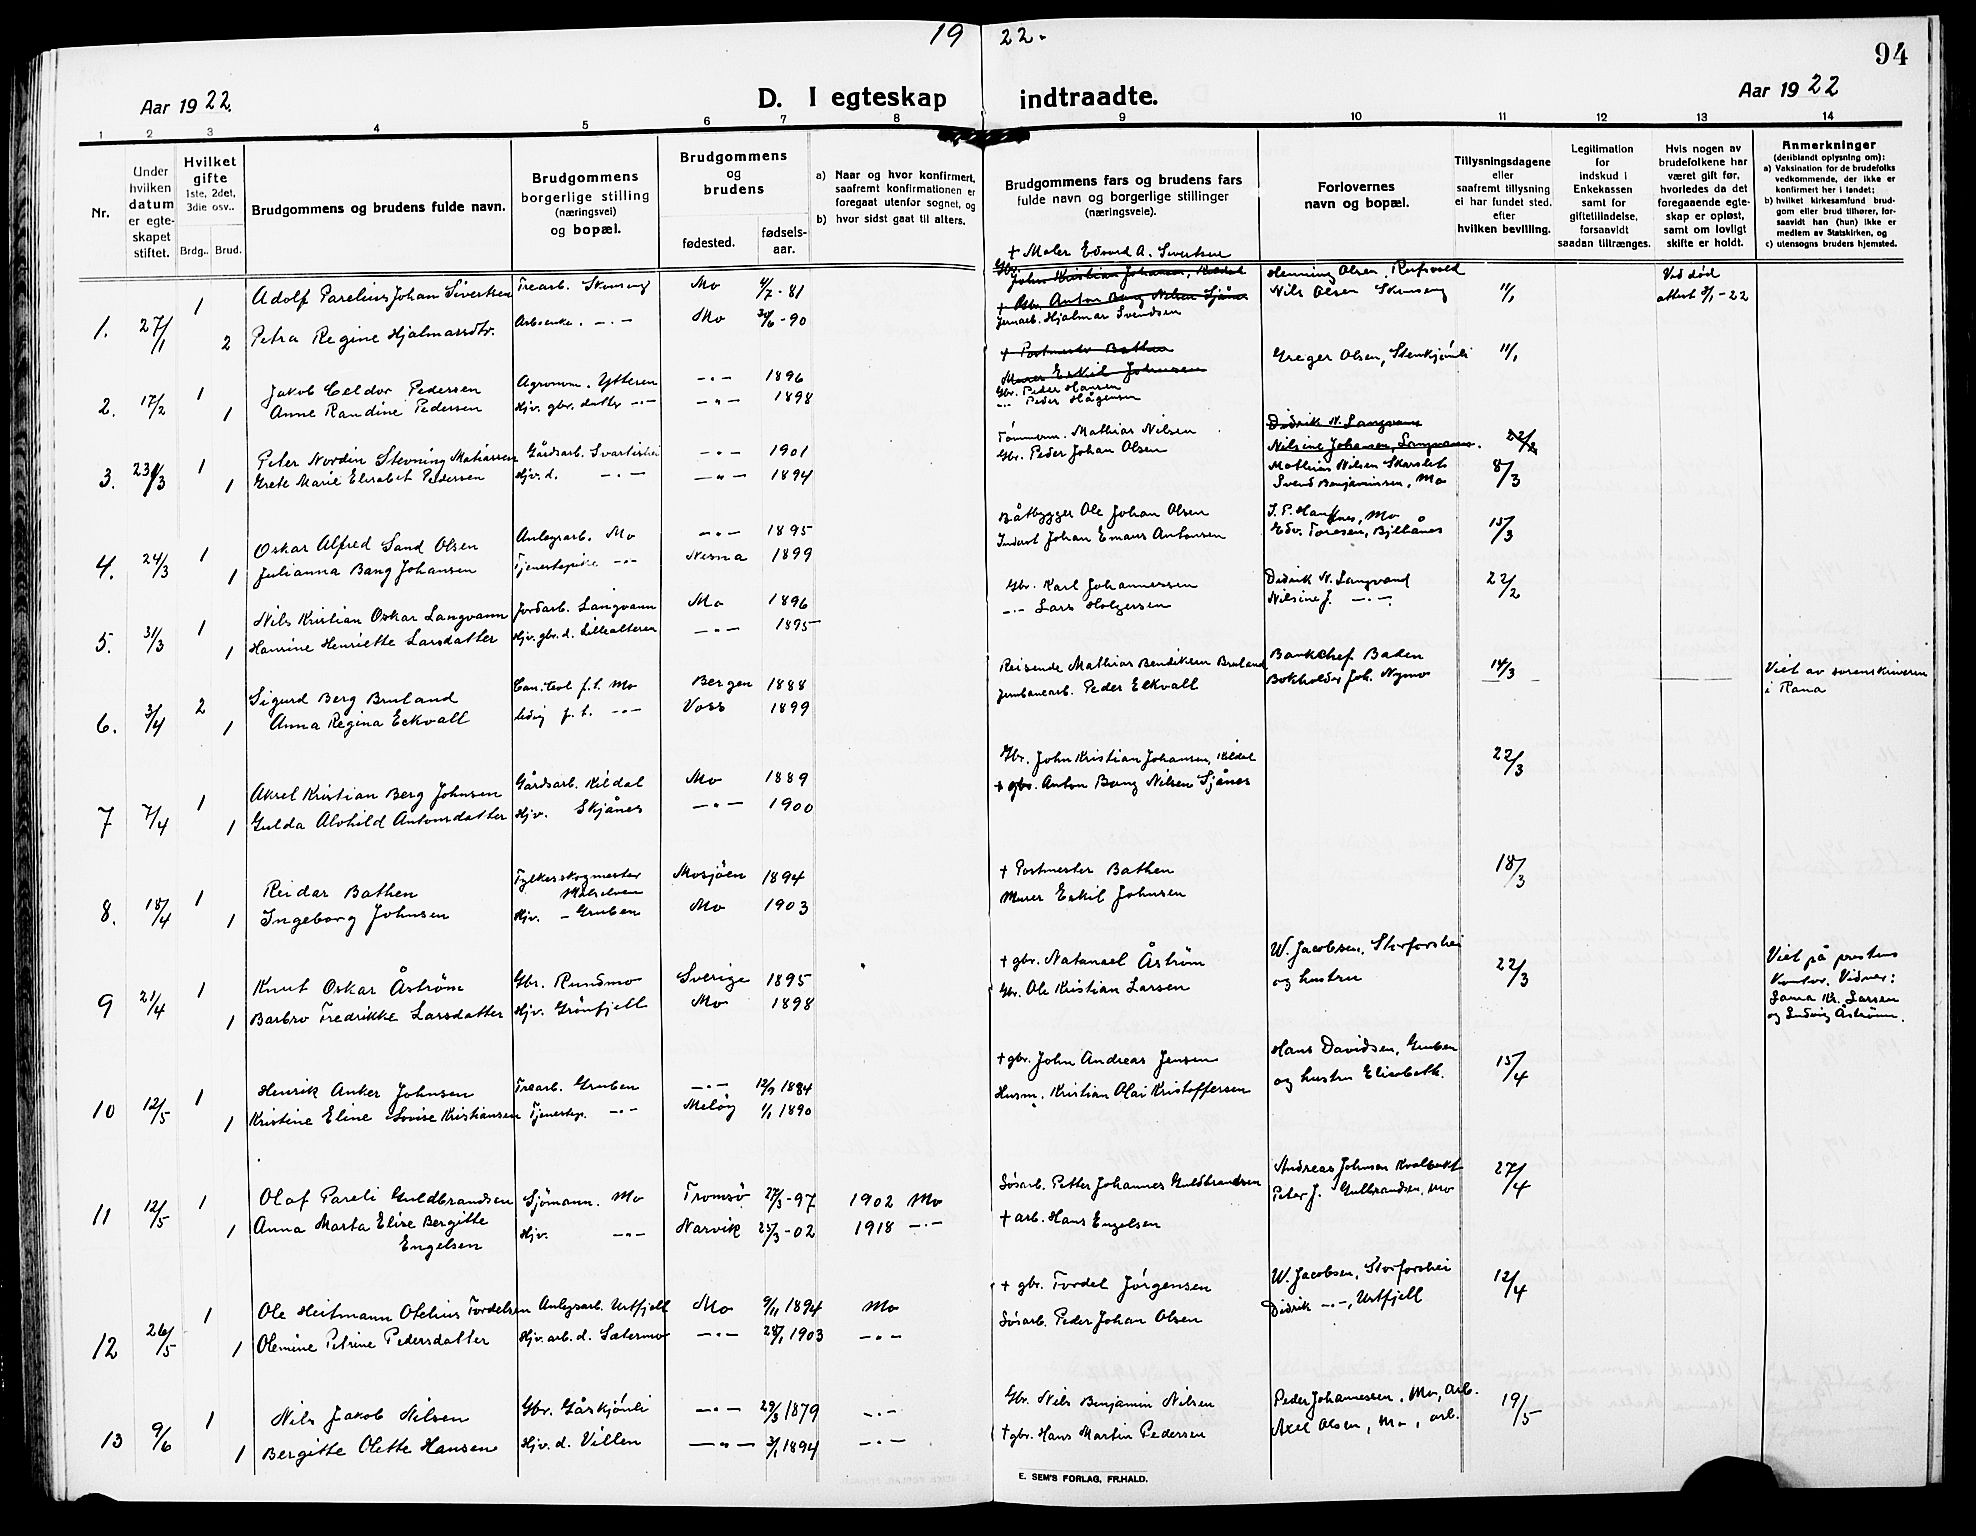 19 22.
94
Aar 1922.
D. I egteskap indtraadte.
Aar 1922
1 2 3 4 5 6 7 8 9 10 11 12 13 14
Nr.
Under hvilken datum er egteskapet stiftet.
Hvilket gifte
1ste, 2det, 3die osv..
Brdg.. Brud.
Brudgommens og brudens fulde navn.
Brudgommens borgerlige stilling (næringsvei) og bopæl.
Brudgommens og brudens
fødested. fødselsaar.
a) Naar og hvor konfirmert, saafremt konfirmationen er foregaat utenfor sognet, og
b) hvor sidst gaat til alters.
Brudgommens fars og brudens fars fulde navn og borgerlige stillinger (næringsveie).
Forlovernes navn og bopæl.
Tillysningsdagene eller saafremt tillysning ei har fundet sted. efter hvilken bevilling.
Legitimation for indskud i Enkekassen samt for giftetilladelse, forsaavidt saadan tiltrænges.
Hvis nogen av brudefolkene har været gift før, hvorledes da det foregaaende egteskap er opløst, samt om lovligt skifte er holdt.
Anmerkninger
(deriblandt oplysning om):
a) Vaksination for de brudefolks vedkommende, der ikke er konfirmert her i landet;
b) hvilket kirkesamfund brudgom eller brud tilhører, forsaavidt han (hun) ikke er medlem av Statskirken, og
c) utensogns bruders hjemsted.
1. 27/1 1 Adolf Parelius Johan Sivertsen Trearb. Skonseng Mo 4/7-81 + Maler Edvard A. Sivertsen Henning Olsen, Rufsvold 11/1 Ved død attest 3/1-22
Gbr. John Kristian Johansen, Kildal
+ Gbr. Anton Bang Nilsen Sjånes
2 Petra Regine Hjalmarsdtr. Arb.enke. -"- Mo 30/6-90 Jernarb. Hjalmar Svendsen Nils Olsen Skonseng
+ Postmester Bathen
Murer Eskil Johnsen
2. 17/2 1 Jakob Celdor Pedersen Agronom. Ytteren -"- 1896 Gbr. Peder Hansen Greger Olsen, Stenkjønli 11/1
1 Anne Randine Pedersen Hjv. gbr. datter -"- -"- 1898 -"- Peder Hågensen
3. 23/3 1 Peter Nordin Stevning Matiassen Gårdsarb. Svartishei -"- 1901 Tømmerm. Mathias Nilsen Didrik N. Langvann
Nilsine Johansen, Langvann. 22/2
1 Grete Marie Elisabet Pedersen Hjv. d. -"- -"- 1894 Gbr. Peder Johan Olsen Mathias Nilsen Skarslet 8/3
Svend Benjaminsen, Mo
4. 24/3 1 Oskar Alfred Sand Olsen Anlegsarb. Mo -"- 1895 Båtbygger Ole Johan Olsen 15/3
1 Julianna Bang Johansen Tjenestepike -"- Nesna 1899 Inderst Johan Emaus Antonsen Edv. Toresen, Bjellånes
5. 31/3 1 Nils Kristian Oskar Langvann Jordarb. Langvann Mo 1896 Gbr. Karl Johannessen Didrik N. Langvand 22/2
1 Hansine Henriette Larsdatter Hjv. gbr. d. Lillealteren -"- 1895 -"- Lars Holgersen Nilsine J. -"-
6. 3/4 2 Sigurd Berg Bruland Can. teol f. t. Mo Bergen 1888 Reisende Mathias Bendiksen Bruland Bankchef Baden 14/3 Viet av sorenskriveren i Rana
1 Anna Regina Eckvall ledig f. t. -"- Voss 1899 Jernbanearb. Peder Eckvall Bokholder Joh. Nymo
7 7/4 1 Aksel Kristian Berg Johnsen Gårdsarb. Kildal Mo 1889 Gbr. John Kristian Johansen, Kildal 22/3
1 Gulda Alvhild Antonsdatter Hjv. Skjånes -"- 1900 + gbr. Anton Bang Nilsen Sjånes
8. 18/4 1 Reidar Bathen Fylkesskogmester Målselven Mosjøen 1894 + Postmester Bathen 18/3
1 Ingeborg Johnsen Hjv. - Gruben Mo 1903 Murer Eskil Johnsen
9 21/4 1 Knut Oskar Åstrøm Gbr. Rundmo Sverige 1895 + gbr. Natanael Åstrøm W. Jacobsen, Storforshei 22/3 Viet på prestens
1 Barbro Fredrikke Larsdatter Hjv. Grønfjell Mo 1898 Gbr. Ole Kristian Larsen og hustru kontor. Vidner:
Kr. Larsen
og Ludvig Åstrøm.
10 12/5 1 Henrik Anker Johnsen Trearb. Gruben -"- 12/9 1884 + gbr. John Andreas Jensen Hans Davidsen, Gruben 15/4
1 Kristine Eline Lovise Kristiansen Tjenestep. -"- Meløy 1/1 1890 Husm. Kristian Olai Kristoffersen og hustru Elisabeth.
11 12/5 1 Olaf Pareli Guldbrandsen Sjømann. Mo Tromsø 27/3-97 1902 Mo Søsarb. Petter Johannes Guldbrandsen Andreas Johnsen Kvalbukt 27/4
1 Anna Marta Elise Bergitte Engelsen Hjv. -"- Narvik 25/3-02 1918 -"- + arb. Hans Engelsen Peter J. Gulbrandsen, Mo
12 26/5 1 Ole Heitmann Otelius Tordelsen Anlegsarb. Urtfjell Mo 9/11 1894 Mo + gbr. Tordel Jørgensen W. Jacobsen, Storforshei 12/4
1 Olemine Petrine Pedersdatter Hjv. arb. d. Sætermo -"- 28/1 1903 -"- Søsarb. Peder Johan Olsen Didrik -"-, Urtfjell
13 9/6 1 Nils Jakob Nilsen Gbr. Gåskjønli -"- 29/3 1879 -"- Gbr. Nils Benjamin Nilsen Peder Johannessen, Mo, arb. 19/5
1 Bergitte Olette Hansen Hjv. d. Villen -"- 3/1 1894 -"- + gbr. Hans Martin Pedersen Axel Olsen, Mo, arb.
E. SEM'S FORLAG, FR.HALD.